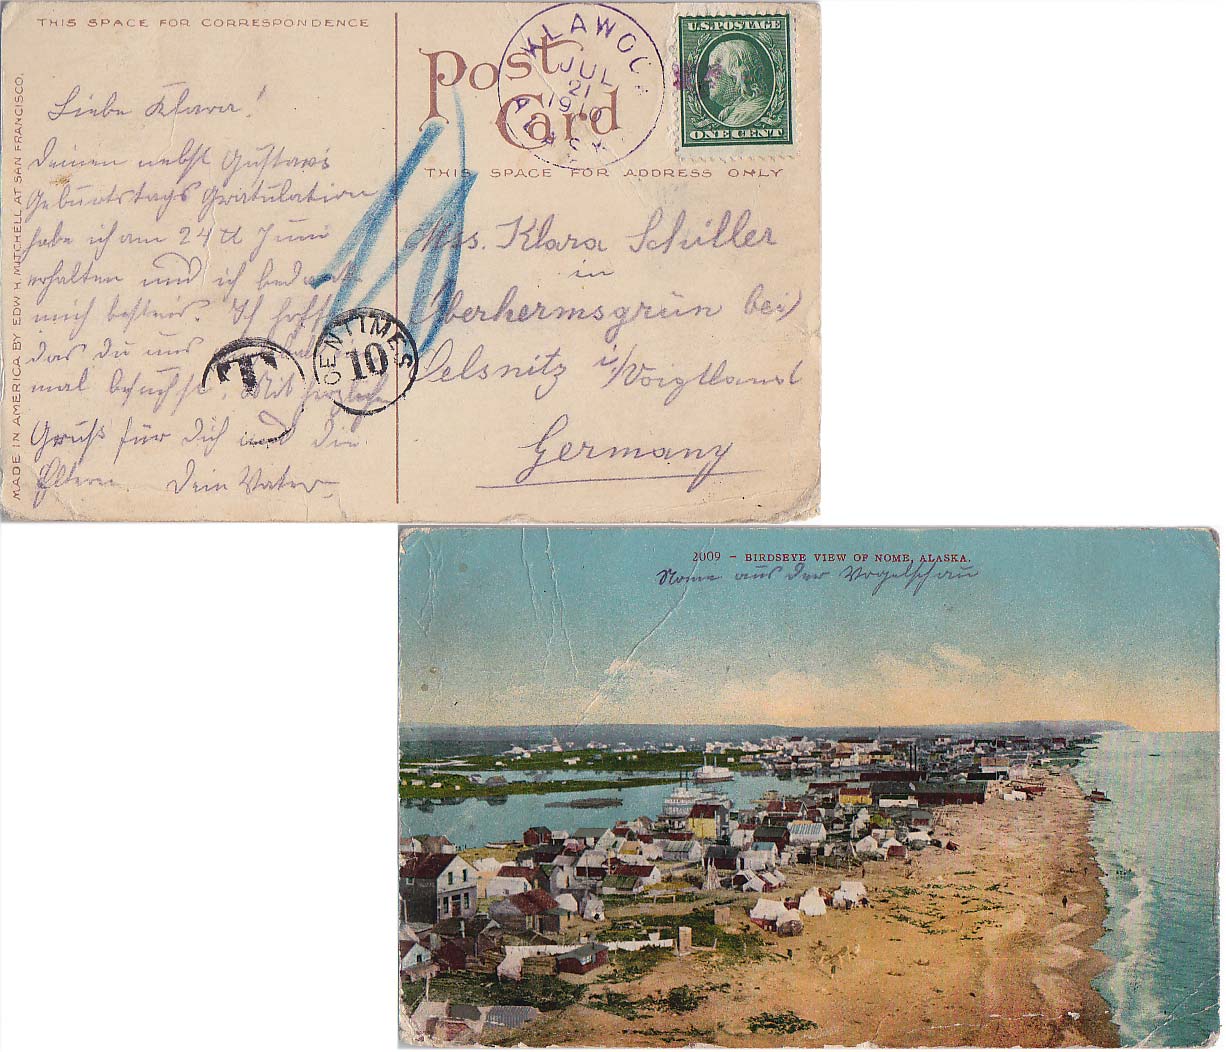 THIS SPACE FOR CORRESPONDENCE
MADE IN AMERICA BY EDW. H. MITCHELL AT SAN FRANCISCO.
Liebe Klara!
Deinen nebst Gustav's
Geburtstags Gratulation
habe ich am 24 Juni
erhalten und ich bedanke
mich bestens. Ich hoffe
das du uns mal
besuchst. Mit herzlichen
Gruß für Dich und die
Eltern. Dein Vater
Post
Card
KLAWOCK
JUL
21
1910
ALASKA
U.S. POSTAGE
ONE CENT
THIS SPACE FOR ADDRESS ONLY
Mrs. Klara Schiller
in
Oberhermsgrün bei
Oelsnitz i/Voigtland
Germany
T
CENTIMES
10
2009 - BIRDSEYE VIEW OF NOME, ALASKA.
Nome aus der Vogelschau